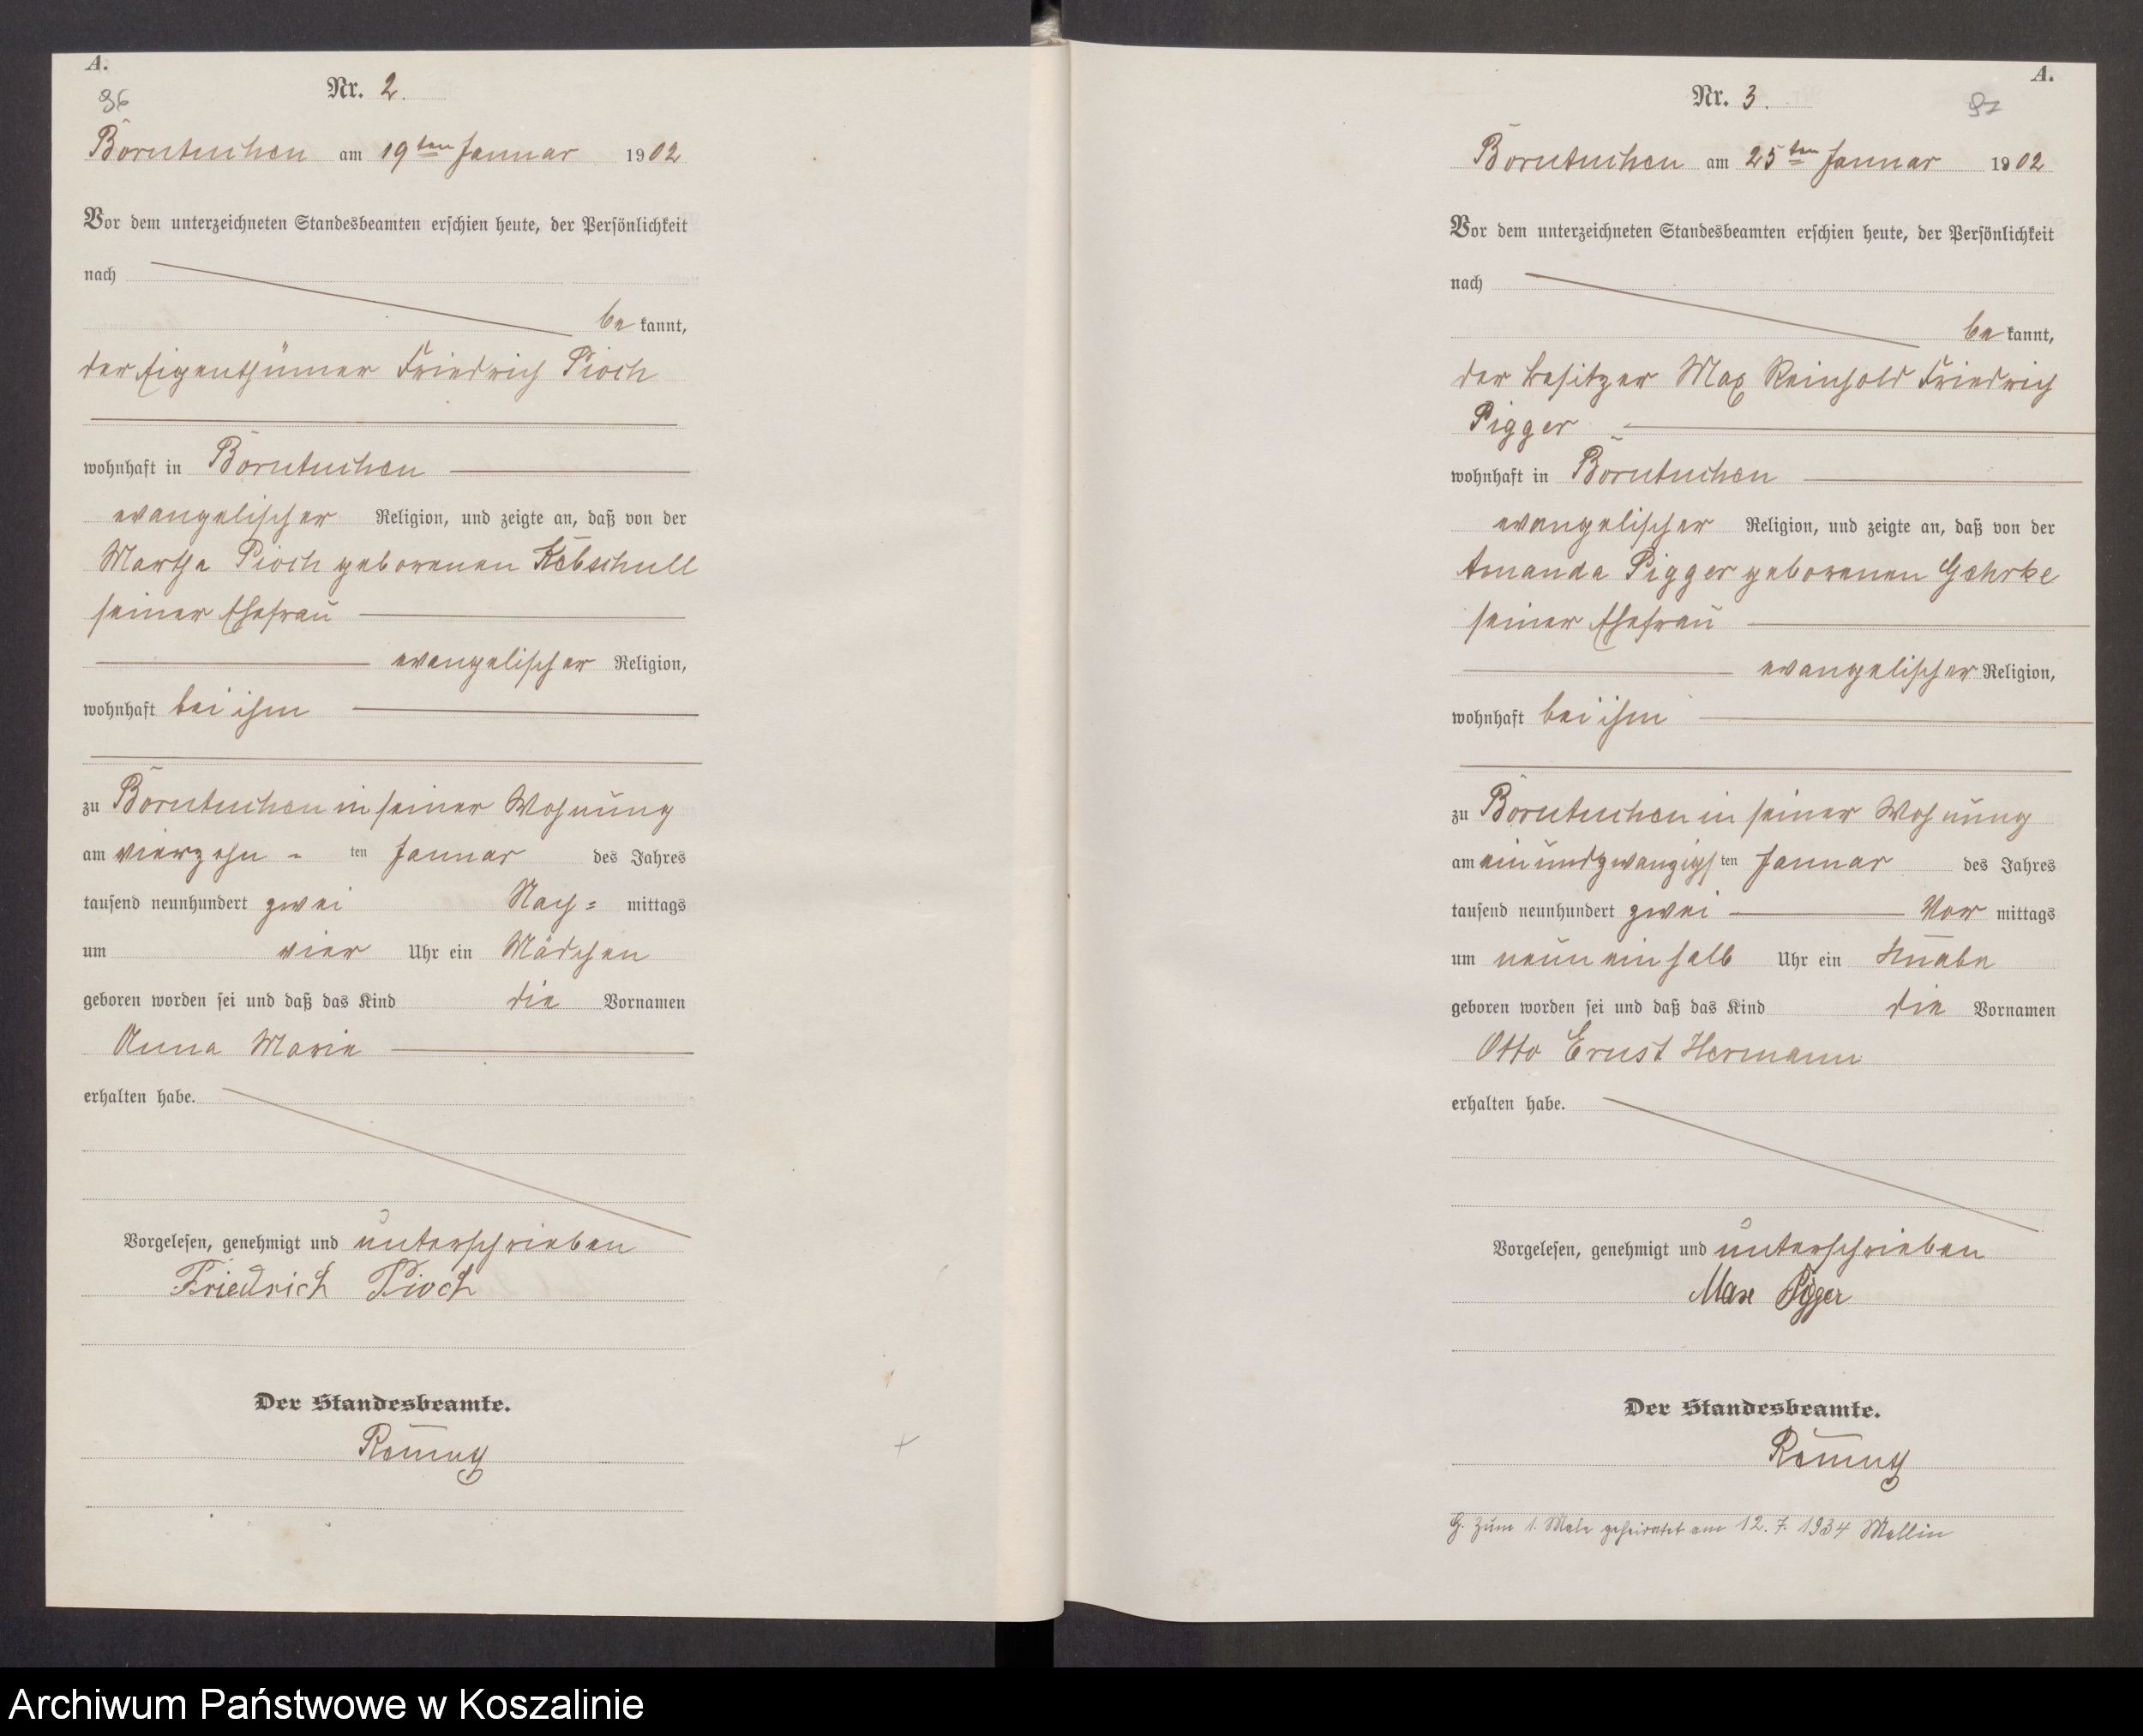 A.
96
Nr. 2.
Borntuchen am 19ten Januar 1902
Vor dem unterzeichneten Standesbeamten erschien heute, der Persönlichkeit
nach
be kannt,
der Eigenthümer Friedrich Pioch
wohnhaft in Borntuchen
evangelischer Religion, und zeigte an, daß von der
Martha Pioch geborenen Kebschull
seiner Ehefrau
evangelischer Religion,
wohnhaft bei ihm
zu Borntuchen in seiner Wohnung
am vierzehn - ten Januar des Jahres
tausend neunhundert zwei Nach= mittags
um vier Uhr ein Mädchen
geboren worden sei und daß das Kind die Vornamen
Anna Marie
erhalten habe.
Vorgelesen, genehmigt und unterschrieben
Friedrich Pioch
Der Standesbeamte.
A.
Nr. 3.
97
Borntuchen am 25ten Januar 1902
Vor dem unterzeichneten Standesbeamten erschien heute, der Persönlichkeit
nach
be kannt,
der Besitzer Max Reinhold Friedrich
Pigger
wohnhaft in Borntuchen
evangelischer Religion, und zeigte an, daß von der
Amanda Pigger geborenen Gehrke
seiner Ehefrau
evangelischer Religion,
wohnhaft bei ihm
zu Borntuchen in seiner Wohnung
am einundzwanzigsten Januar des Jahres
tausend neunhundert zwei Vor mittags
um neun ein halb Uhr ein Knabe
geboren worden sei und daß das Kind die Vornamen
Otto Ernst Hermann
erhalten habe.
Vorgelesen, genehmigt und unterschrieben
Max Pigger
Der Standesbeamte.
G. zum 1. Male geheiratet am 12. 7. 1934 Mellin
Archiwum Państwowe w Koszalinie